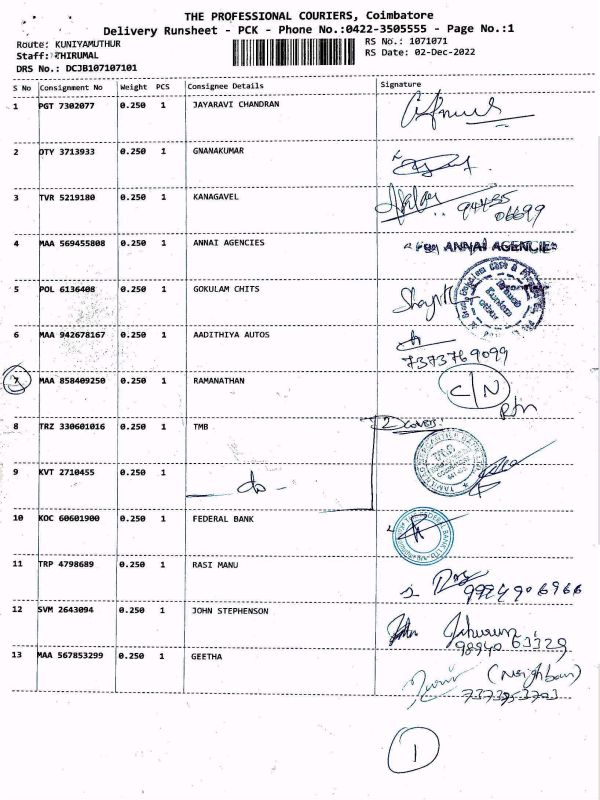 THE PROFESSIONAL COURIERS, Coimbatore
Delivery Runsheet - PCK - Phone No.:0422-3505555 - Page No.:1
Route: KUNIYAMUTHUR
RS No.: 1071071
Staff: THIRUMAL
RS Date: 02-Dec-2022
DRS No.: DCJB107107101
S No Consignment No Weight PCS Consignee Details Signature
1 PGT 7302077 0.250 1 JAYARAVI CHANDRAN
2 DTY 3713933 0.250 1 GNANAKUMAR
3 TVR 5219180 0.250 1 KANAGAVEL
94435
06699
4 MAA 569455808 0.250 1 ANNAI AGENCIES
For ANNAI AGENCIES
5 POL 6136408 0.250 1 GOKULAM CHITS
6 MAA 942678167 0.250 1 AADITHIYA AUTOS
7373769099
7 MAA 858409250 0.250 1 RAMANATHAN
C/N
8 TRZ 330601016 0.250 1 TMB
2 COVERS
9 KVT 2710455 0.250 1
-do-
10 KOC 60601900 0.250 1 FEDERAL BANK
11 TRP 4798689 0.250 1 RASI MANU
9924906966
12 SVM 2643094 0.250 1 JOHN STEPHENSON
98940 63329
13 MAA 567853299 0.250 1 GEETHA
(Neighbour)
1